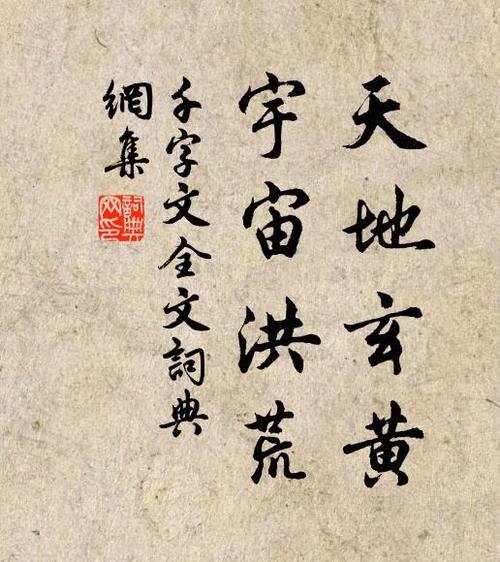 天地玄黃
宇宙洪荒
千字文全文詞典
網集
詞典
网印